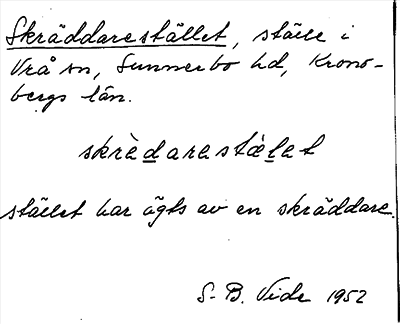 Skräddarestället, ställe i
Vrå sn, Sunnerbo hd, Krono-
bergs län.
skrèdarestä̀let
stället har ägts av en skräddare.
S-B. Vide 1952